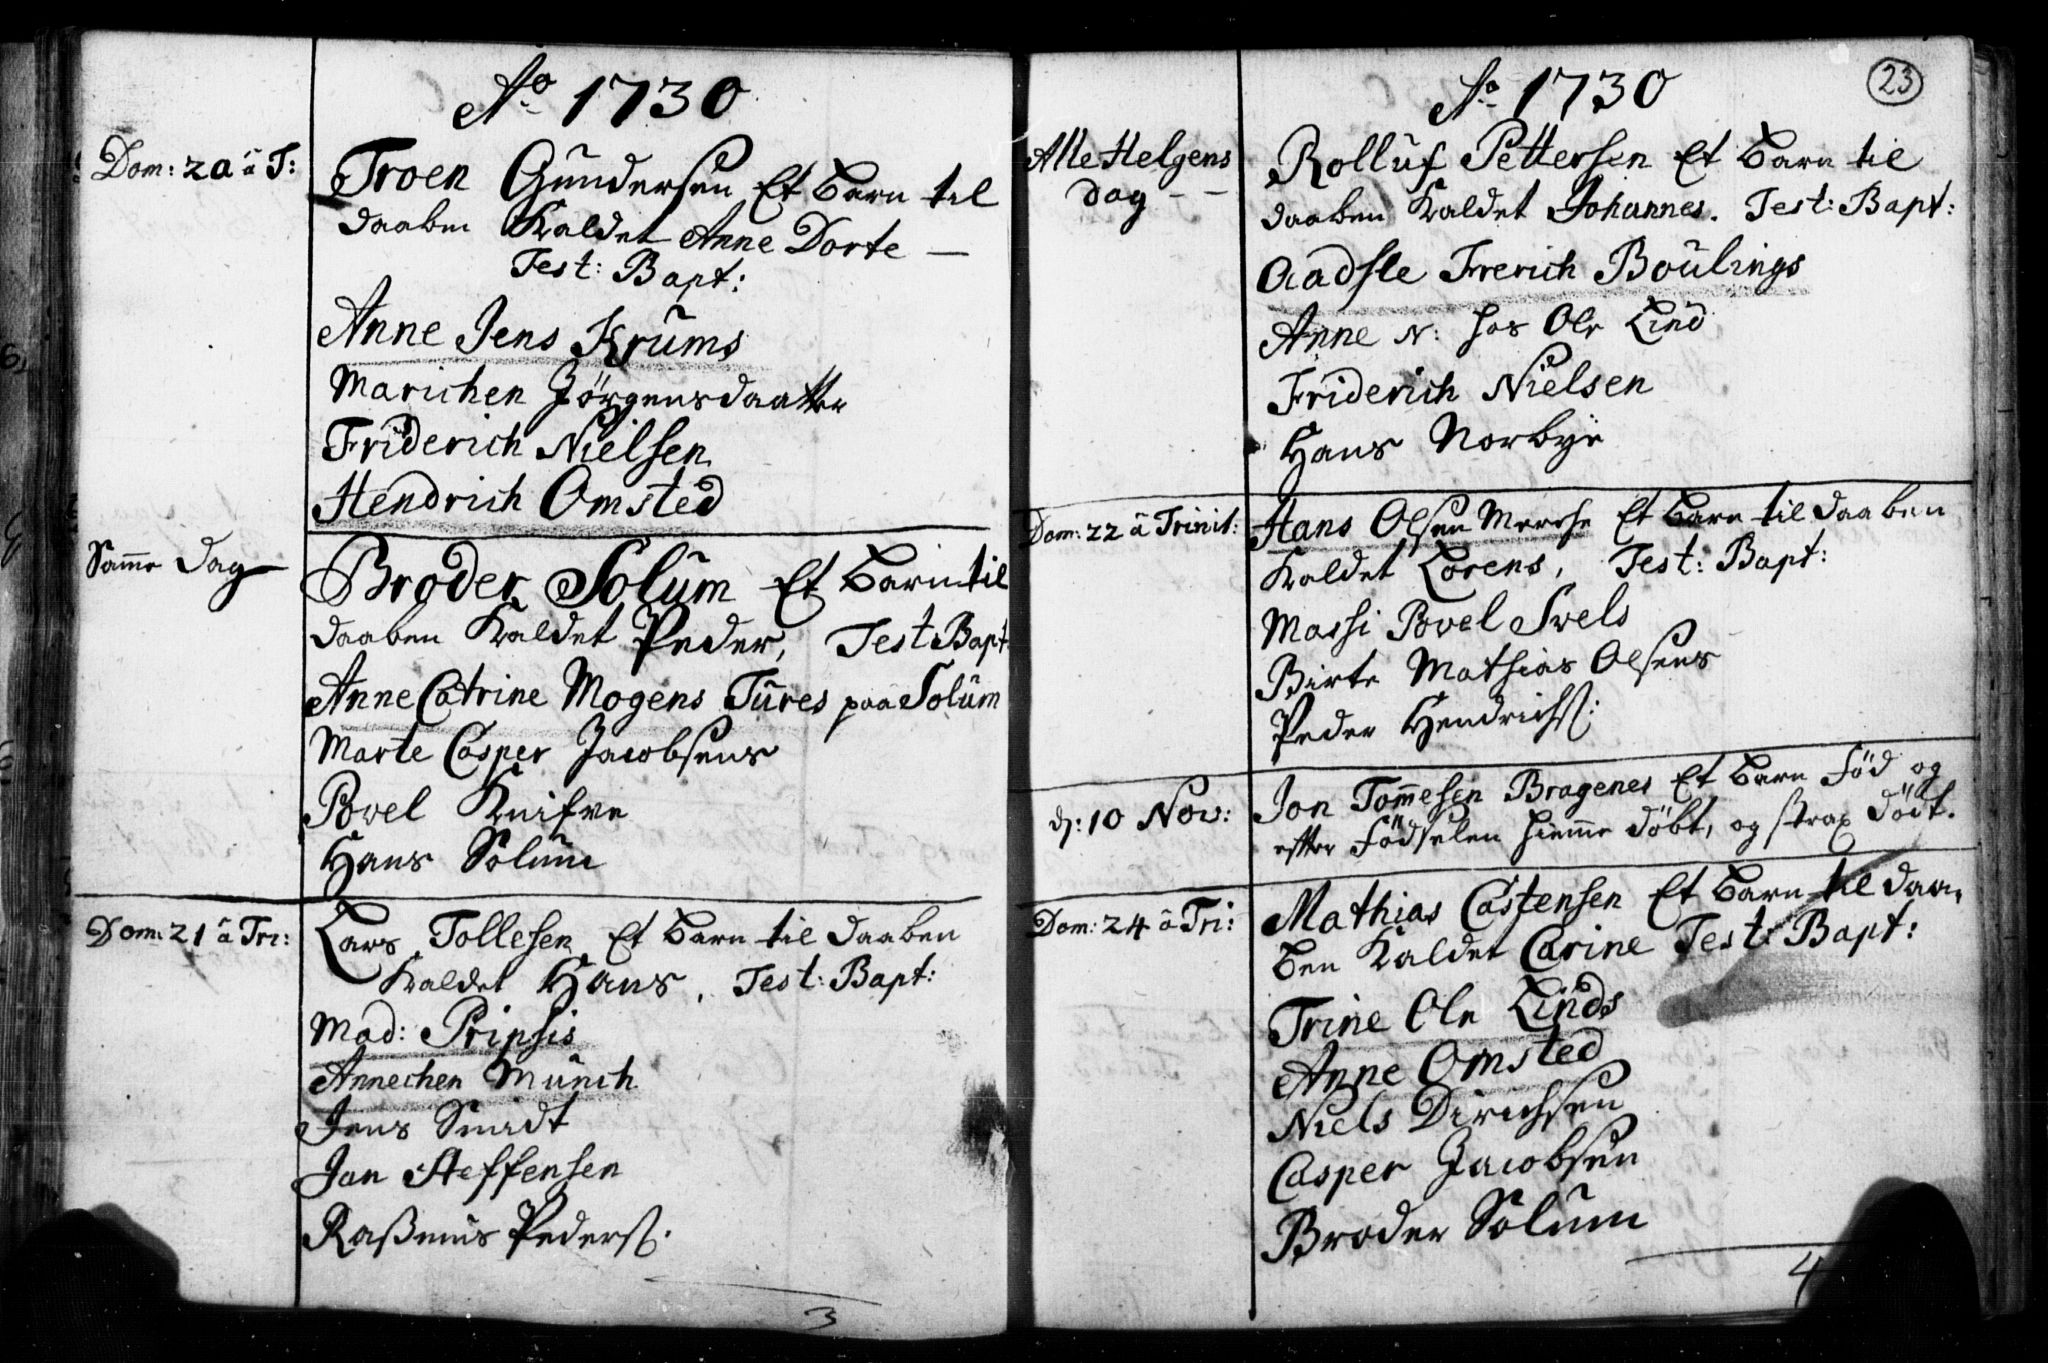 Ao 1730
Dom: 20 à T:
Troen Gundersen Et barn til
daaben Kaldet Anne Dorte —
Test: Bapt:
Anne Jens Krums
Marichen Jörgensdaatter
Friderich Nielsen
Hendrich Omsted
Samme Dag
Broder Solum Et barn til
daaben Kaldet Peder, Test: Bapt
Anne Catrine Mogens Tures paa Solum
Marte Casper Jacobsens
Povel Knifve
Hans Solum
Dom: 21 à Tri:
Lars Tollesen Et barn til daaben
Kaldet Hans, Test: Bapt:
Mad: Pripsis
Annechen Münch
Jens Smidt
Jan Steffensen
Raßmus Peders:
3
23
Ao 1730
Alle Helgens
dag - -
Rolluf Pettersen Et barn til
daaben Kaldet Johannes. Test: Bapt:
Aadsle Frerich Boulings
Anne N: hos Ole Lind
Friderich Nielsen
Hans Norbye
Dom: 22 à Trinit:
Hans Olsen Mersche Et barn til daaben
Kaldet Lorens, Test: Bapt:
Massi Povel Svels
Birte Mathias Olsens
Peder Hendrichs:
d: 10 Nov:
Jon Tommesen Bragenes Et barn Föd og
efter Födselen hiemme döbt, og strax Dödt.
Dom: 24 à Tri:
Mathias Castensen Et barn til daa,
ben Kaldet Carine Test: Bapt:
Trine Ole Linds
Anne Omsted
Niels Dirichsen
Casper Jacobsen
Broder Solum
4